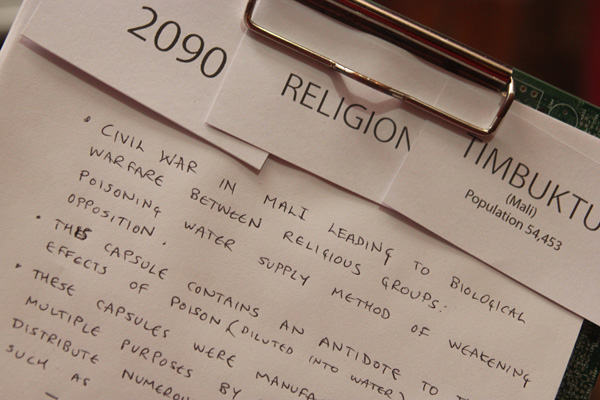 2090
RELIGION
TIMBUKTU
(Mali)
Population 54,453
• CIVIL WAR IN MALI LEADING TO BIOLOGICAL
WARFARE BETWEEN RELIGIOUS GROUPS:
POISONING WATER SUPPLY METHOD OF WEAKENING
OPPOSITION.
• THIS CAPSULE CONTAINS AN ANTIDOTE TO
EFFECTS OF POISON (DILUTED INTO WATER)
• THESE CAPSULES WERE
MULTIPLE PURPOSES BY
DISTRIBUTE
SUCH AS